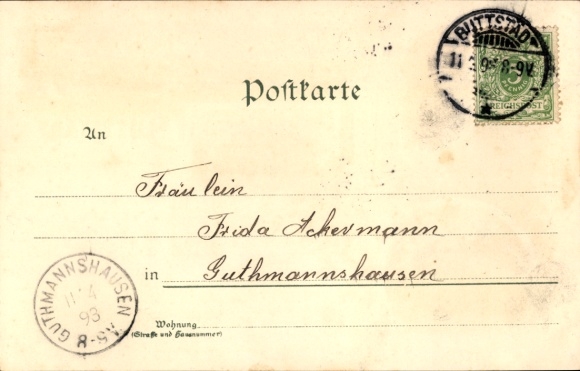 BUTTSTÄDT
11 3 93 8-9V.
5
REICHSPOST
Postkarte
An
Fräulein
Frida Ackermann
in Guthmannshausen
GUTHMANNSHAUSEN
11 4
93
8-9V
Wohnung
(Straße und Hausnummer)